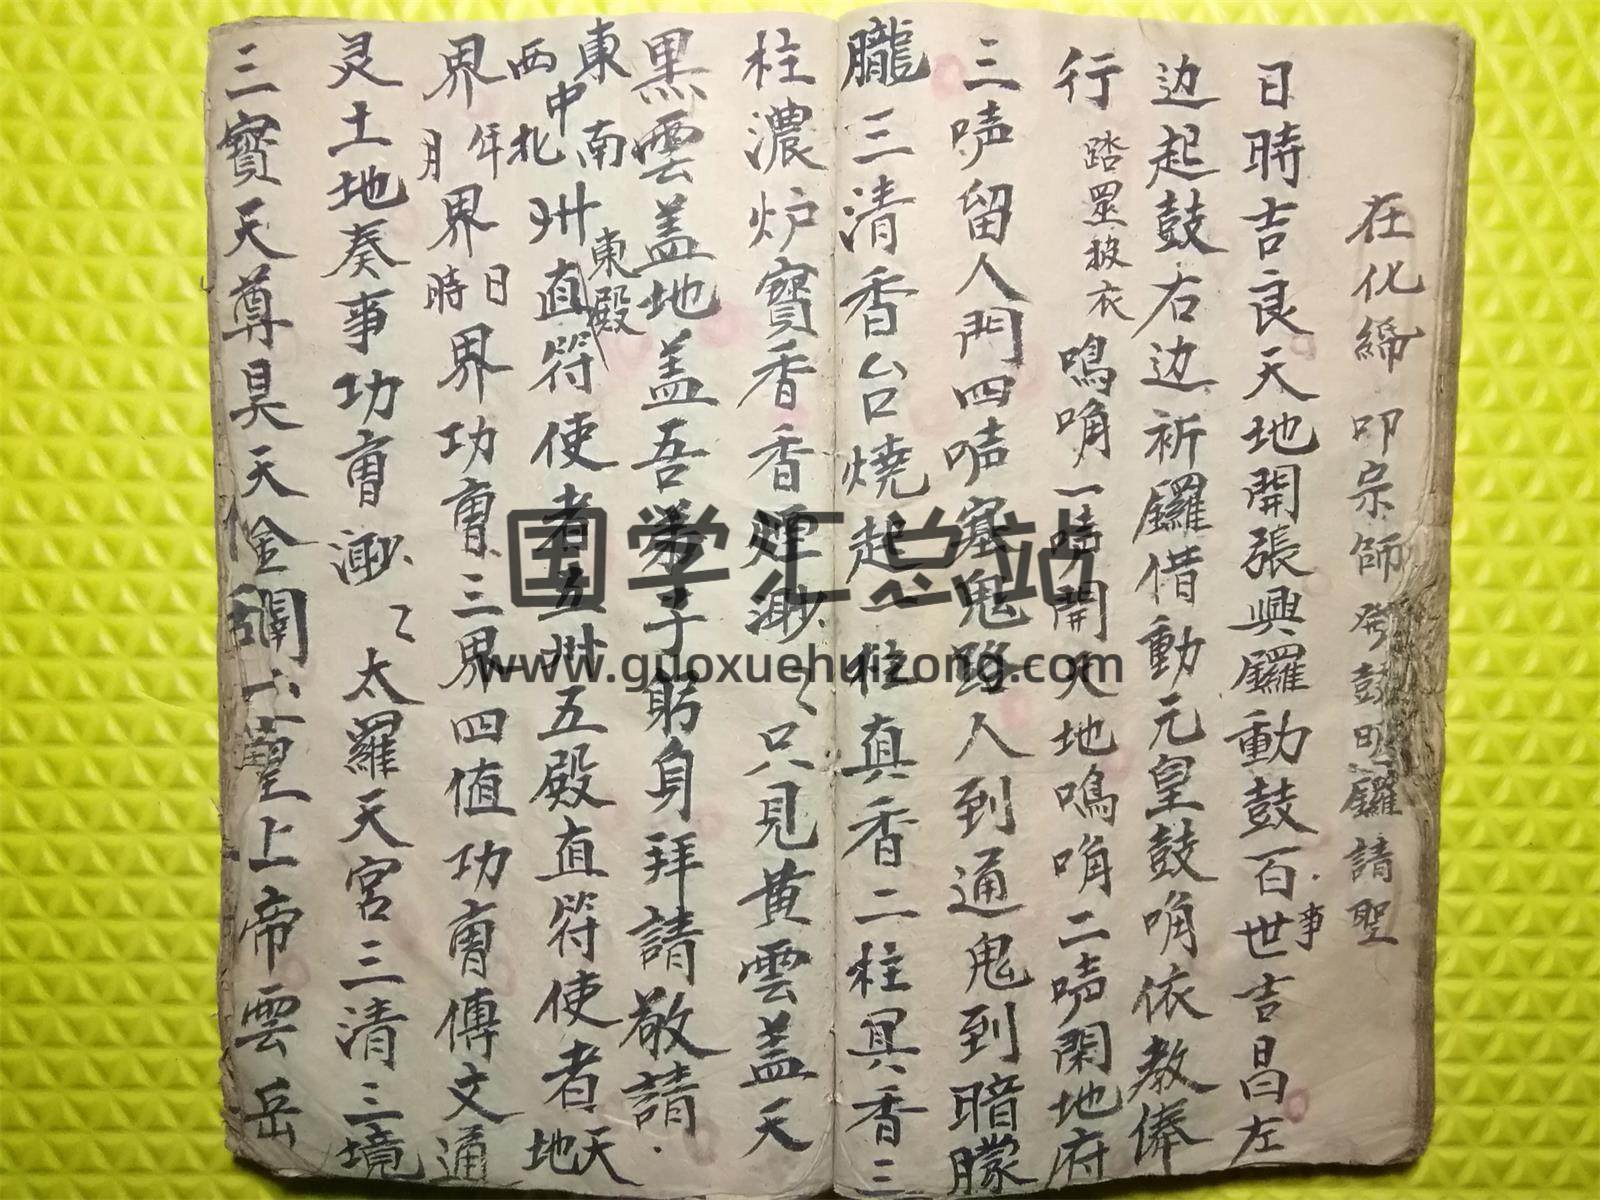 在化 叩宗師 発鼓明鑼請聖
日時吉良天地開張興鑼動鼓百事世吉昌左
边起鼓右边祈鑼借動元皇鼓角依教俸
行 踏罡披衣 鳴角一声開天地鳴角二声閑地府
三声留人門四声塞鬼路人到通鬼到暗朦
朧三清香台燒起一柱真香二柱真香三
柱濃炉寶香香煙渺〻只見黄雲盖天
黒雲盖地盖吾弟子躬身拜請敬請
東南中西北州東殿直符使者五州五殿直符使者天地
界年月界日時界功曹三界四值功曹傳文通
灵土地奏事功曹渺〻太羅天宮三清三境
三寳天尊昊天金闕六皇上帝雲岳
国学汇总站
www.guoxuehuizong.com